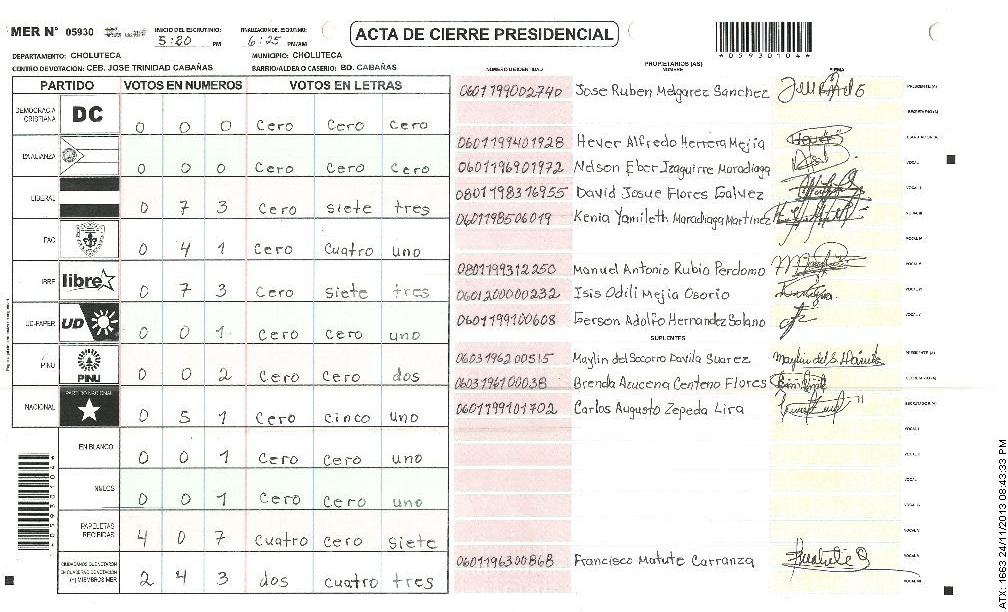 MER N° 05930
INICIO DEL ESCRUTINIO:
5:20 PM
FINALIZACION DEL ESCRUTINIO:
6:25 PM/AM
ACTA DE CIERRE PRESIDENCIAL
*05930104*
DEPARTAMENTO: CHOLUTECA
MUNICIPIO: CHOLUTECA
CENTRO DE VOTACION: CEB. JOSE TRINIDAD CABAÑAS
BARRIO/ALDEA O CASERIO: BO. CABAÑAS
PARTIDO VOTOS EN NUMEROS VOTOS EN LETRAS
DEMOCRACIA CRISTIANA DC 0 0 0 cero cero cero
0 0 0 cero cero cero
LIBERAL 0 7 3 cero siete tres
PAC 0 4 1 cero cuatro uno
libre 0 7 3 cero siete tres
UD 0 0 1 cero cero uno
PINU PINU 0 0 2 cero cero dos
NACIONAL PARTIDO NACIONAL 0 5 1 cero cinco uno
EN BLANCO 0 0 1 cero cero uno
NULOS 0 0 1 cero cero uno
PAPELETAS RECIBIDAS 4 0 7 cuatro cero siete
CIUDADANOS QUE VOTARON EN CUADERNO DE VOTACION (+) MIEMBROS MER 2 4 3 dos cuatro tres
NUMERO DE IDENTIDAD PROPIETARIOS (AS) NOMBRE FIRMA
0601199002740 Jose Ruben Melgarez Sanchez PRESIDENTE (A)
0601199401928 Hever Alfredo Herrera Mejia
0601196901972 Nelson Eber Izaguirre Maradiaga
0801198316955 David Josue Flores Galvez
0601198506019 Kenia Yamileth Maradiaga Martinez
0801199312250 Manuel Antonio Rubio Perdomo
0601200000232 Isis Odili Mejia Osorio
0601199100608 Gerson Adolfo Hernandez Solano
SUPLENTES
0603196200515 Maylin del Socorro Davila Suarez PRESIDENTE (A)
0603196100038 Brenda Azucena Centeno Flores
0601199101702 Carlos Augusto Zepeda Lira
0601196300868 Francisco Matute Carranza
*05930104*
ATX: 1663 24/11/2013 08:43:33 PM